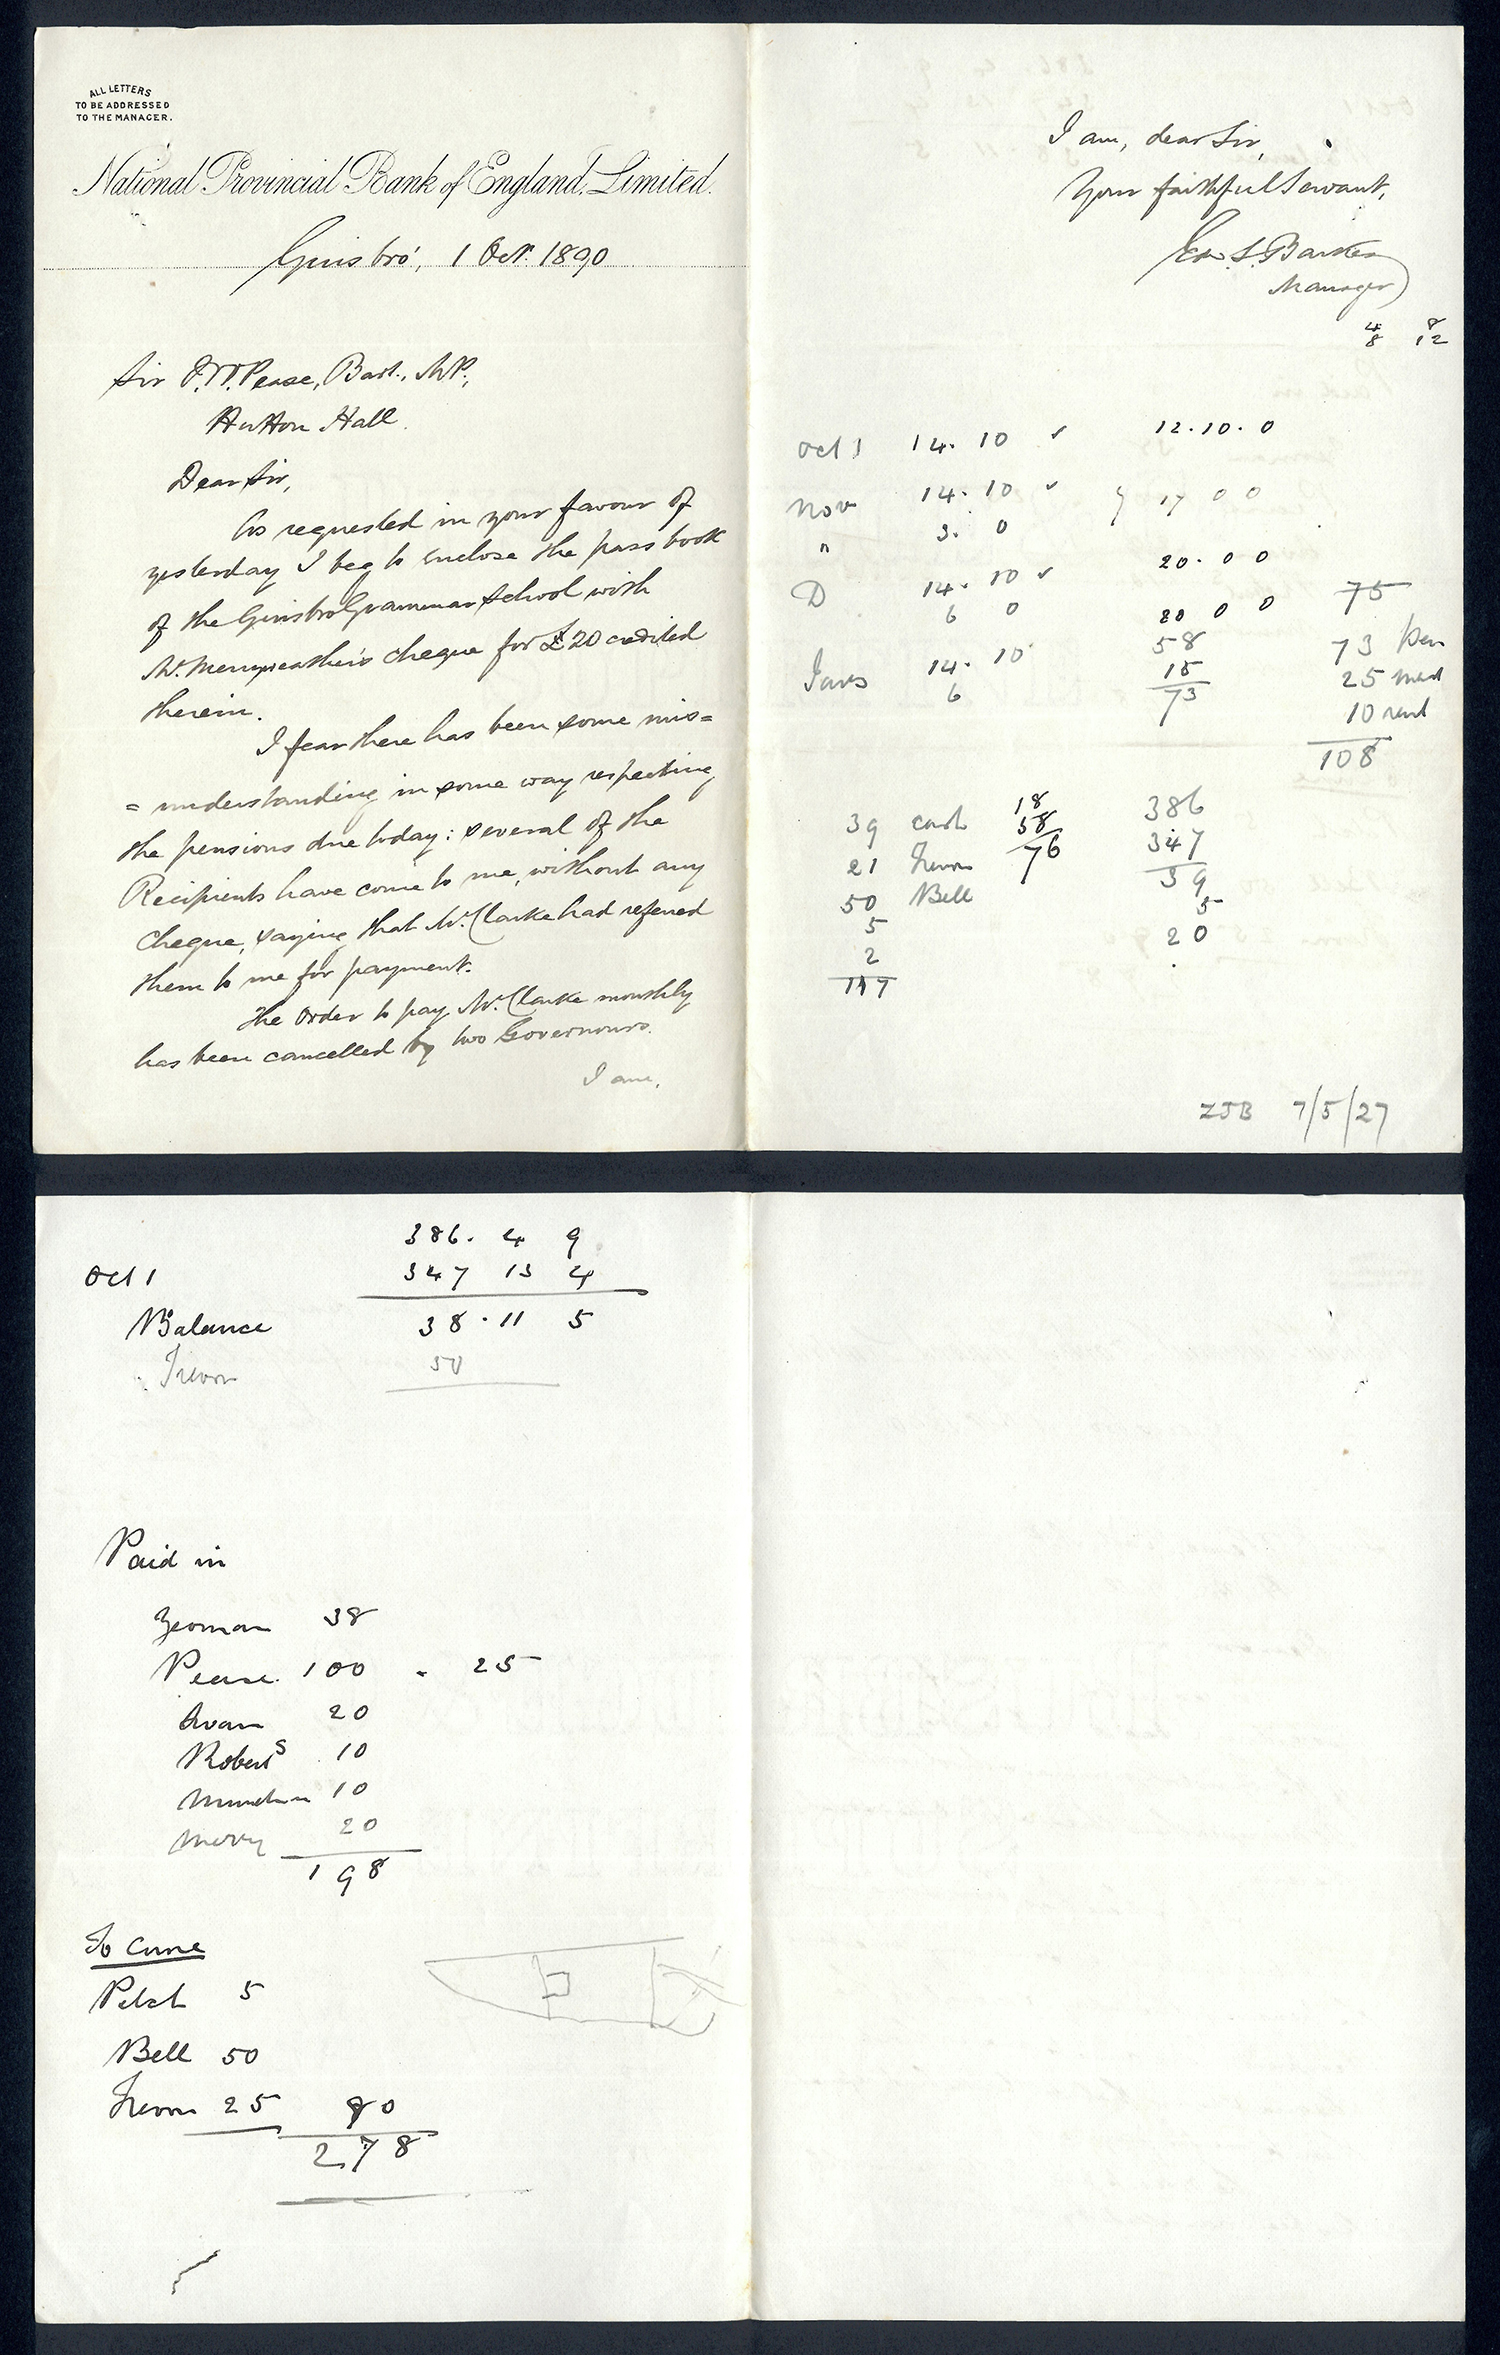 ALL LETTERS
TO BE ADDRESSED
TO THE MANAGER.
National Provincial Bank of England, Limited.
Guisbro', 1 Oct. 1890
Sir J.W. Pease, Bart., M.P.,
Hutton Hall.
Dear Sir,
As requested in your favour of
yesterday I beg to enclose the pass book
of the Guisbro Grammar School with
Mr. Merryweather's cheque for £20 credited
therein.
I fear there has been some mis=
=understanding in some way respecting
the pensions due today: several of the
Recipients have come to me, without any
cheque, saying that Mr. Clarke had referred
them to me for payment.
The order to pay Mr. Clarke monthly
has been cancelled by two Governours.
I am,
I am, dear Sir,
Your faithful Servant,
Manager
4 8
8 12
Oct 1 14. 10 ✓ 12. 10. 0
Nov 14. 10 ✓ 17 0 0
" 3. 0
20. 0 0
D 14. 10 ✓ 75
6 0 20 0 0
58 73 Pen
Jany 14. 10 15 25 mast
6 73 10 rent
108
39 cash 18 386
58 347
21 Trevor 76 39
50 Bell 5
5 20
2
117
ZJB 7/5/27
386. 4 9
Oct 1 347 13 4
Balance 38. 11 5
Trevor 50
Paid in
Yeoman 38
Pease 100 - 25
20
Roberts 10
10
Merry 20
198
To Come
Petch 5
Bell 50
Trevor 25 80
278